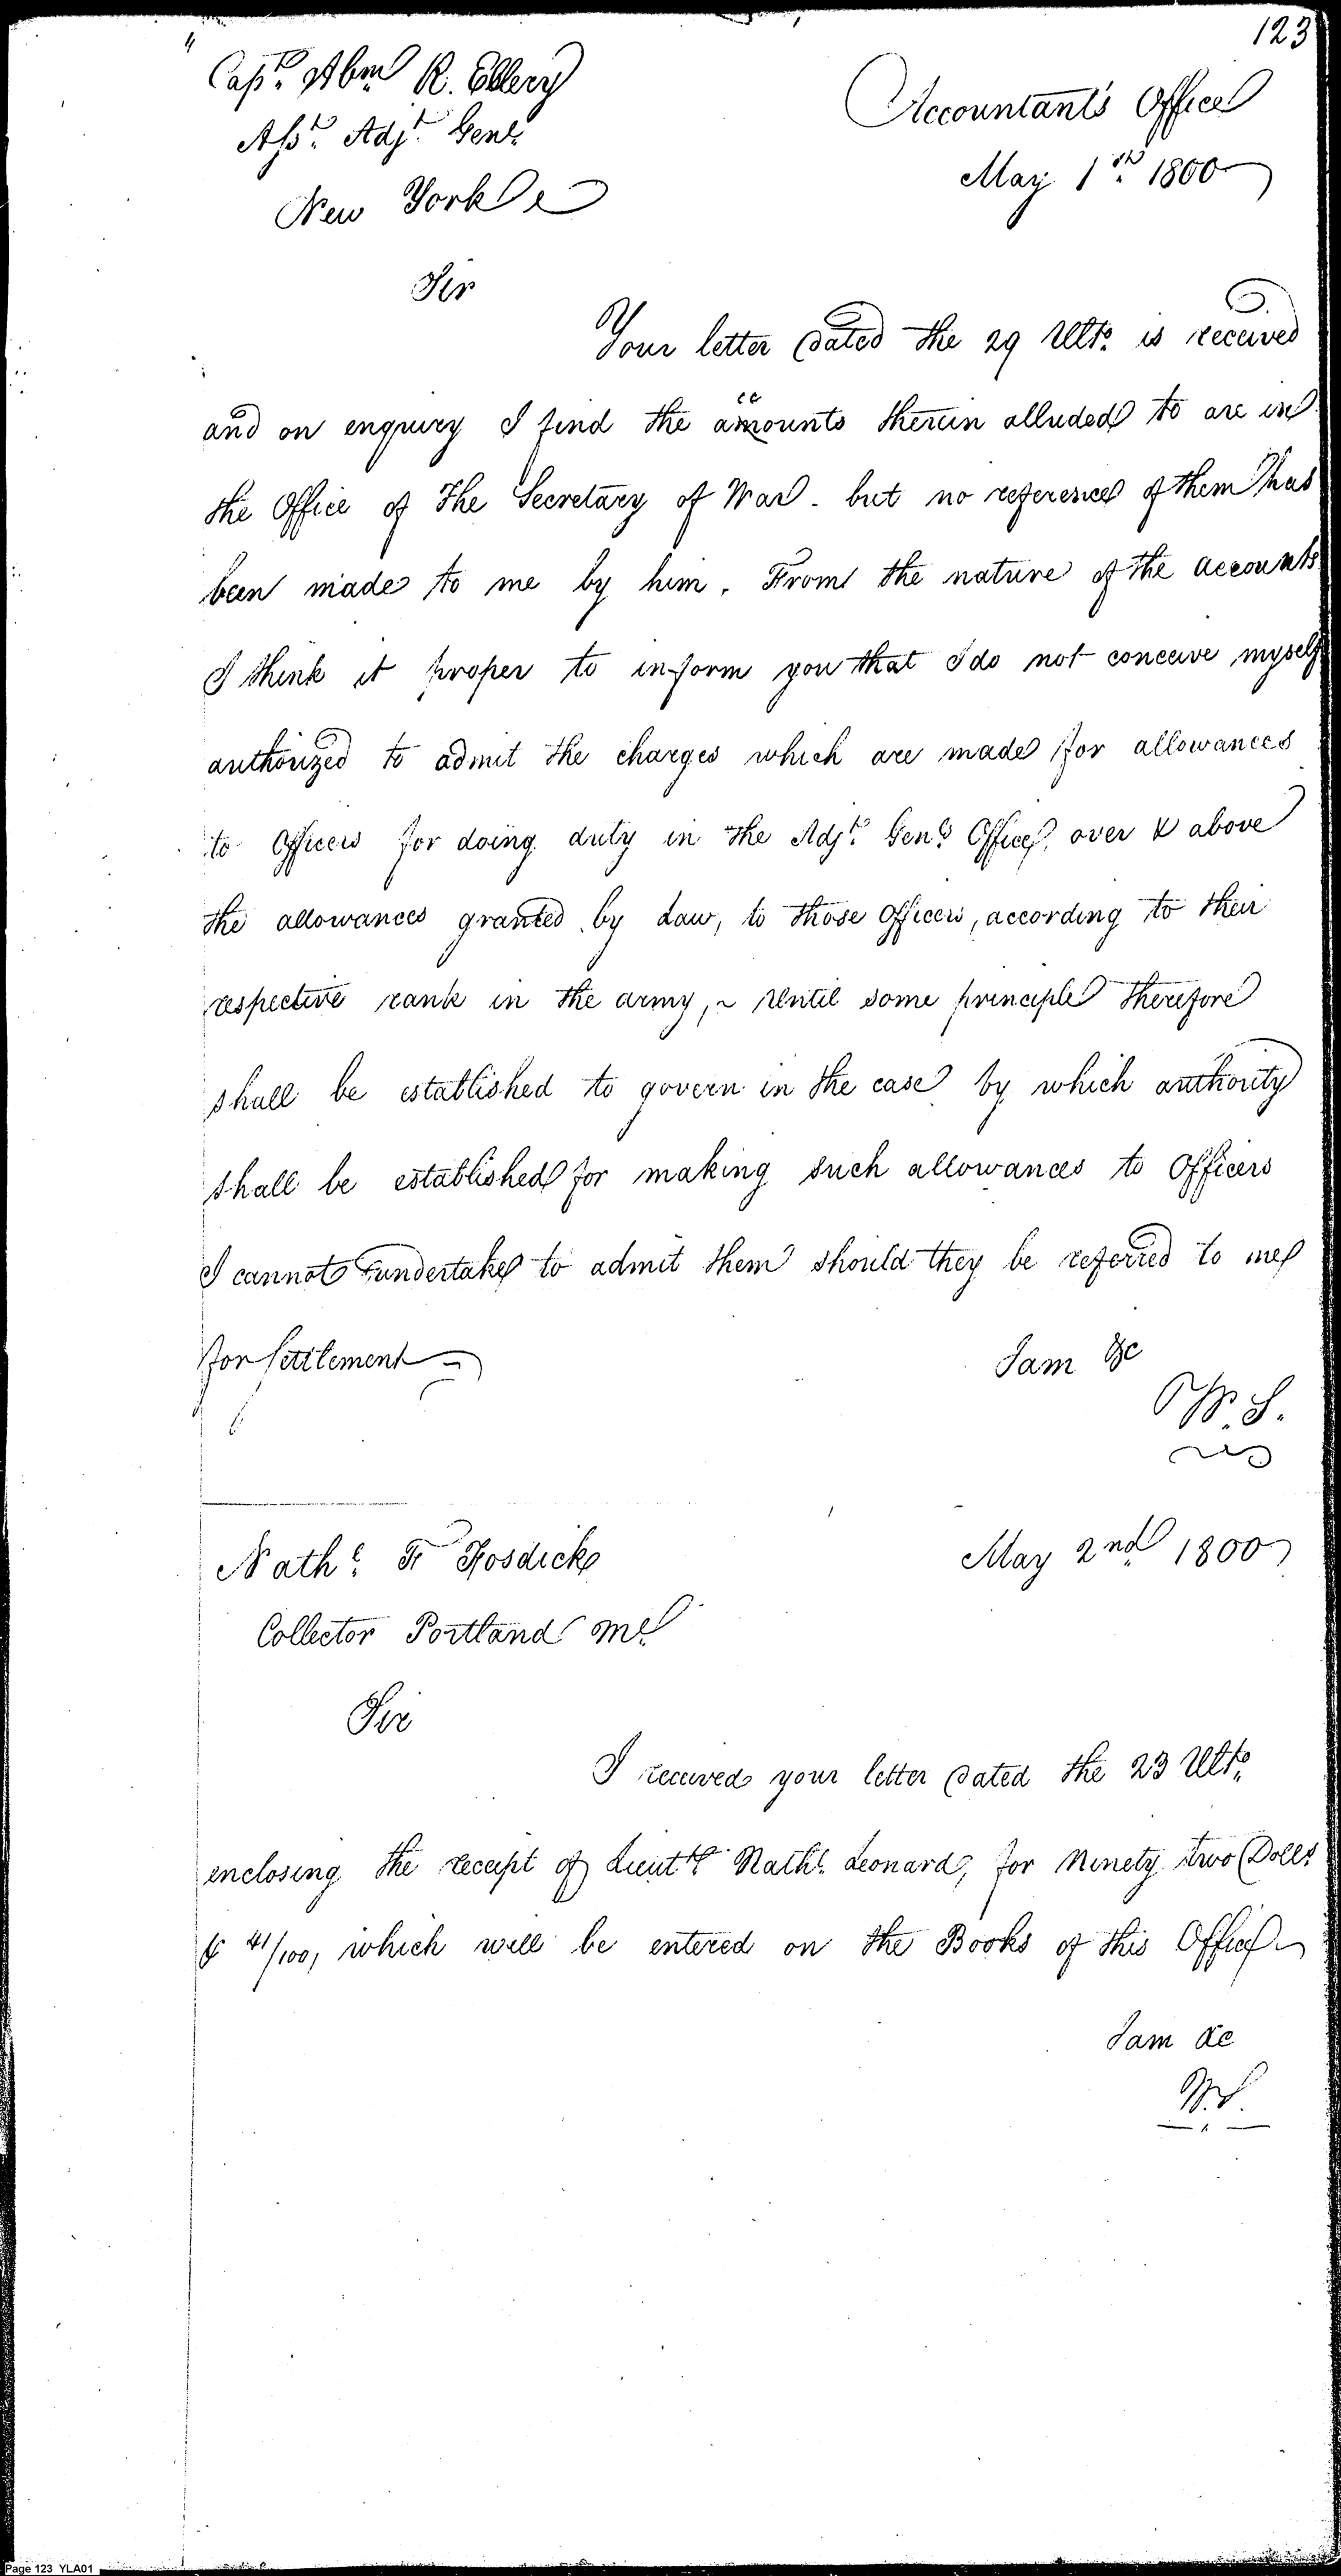 123
Capt. Abm R. Ellery
Asst. Adjt. Genl.
New York
Accountant's Office
May 1st 1800
Sir
Your letter dated the 29 Ulto. is received
and on enquiry I find the amounts therein alluded to are in
cc
the Office of The Secretary of War. but no reference of them has
been made to me by him. From the nature of the accounts
I think it proper to inform you that I do not conceive myself
authorized to admit the charges which are made for allowances
to Officers for doing duty in the Adjt. Genls Office, over & above
the allowances granted by Law, to those Officers, according to their
respective rank in the army, ~ Until some principle therefore
shall be established to govern in the case by which authority
shall be established for making such allowances to Officers
I cannot undertake to admit them should they be referred to me
for Settlement
I am &c
W. S.
Nathl. F Fosdick
Collector Portland Me.
May 2nd 1800
Sir
I received your letter dated the 23 Ulto.
enclosing the receipt of Lieutt Nathl. Leonard, for Ninety two Dolls
& 41/100, which will be entered on the Books of this Office
I am &c
W.S.
Page 123 YLA01